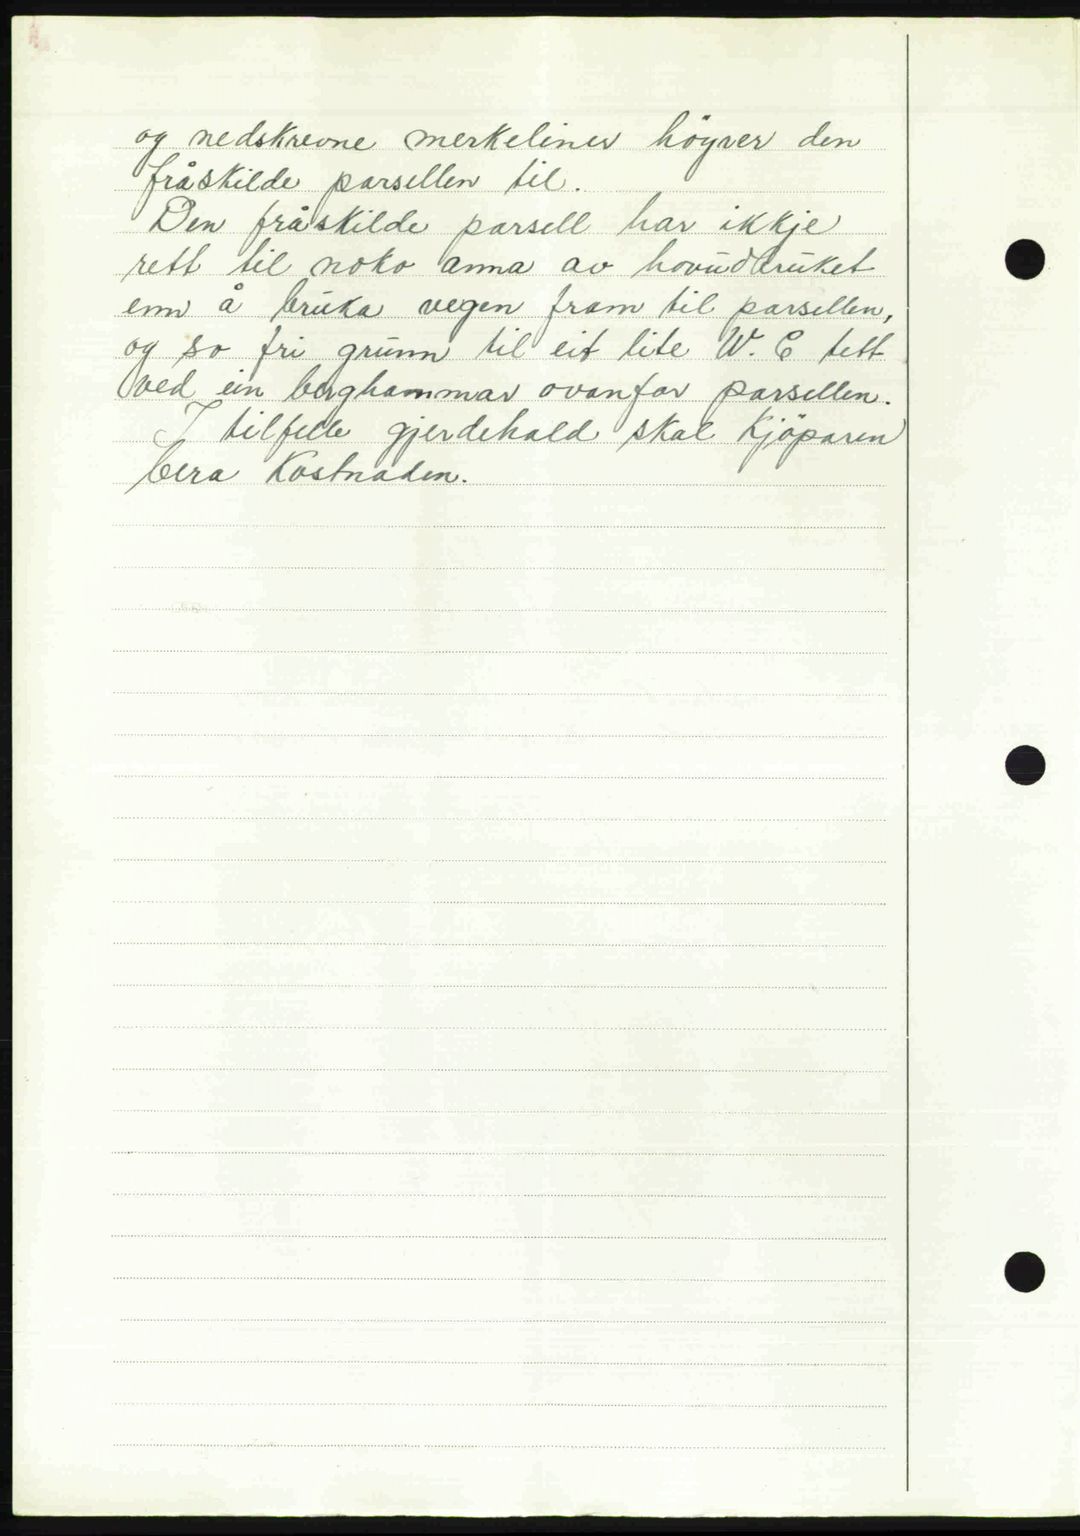 og nedskrevne merkeliner höyrer den
fråskilde parsellen til.
Den fråskilde parsell har ikkje
rett til noko anna av hovudbruket
enn å bruka vegen fram til parsellen,
og so fri grunn til eit lite W. C tett
ved ein berghammar ovanfor parsellen.
I tilfelle gjerdehald skal kjöparen
bera kostnaden.